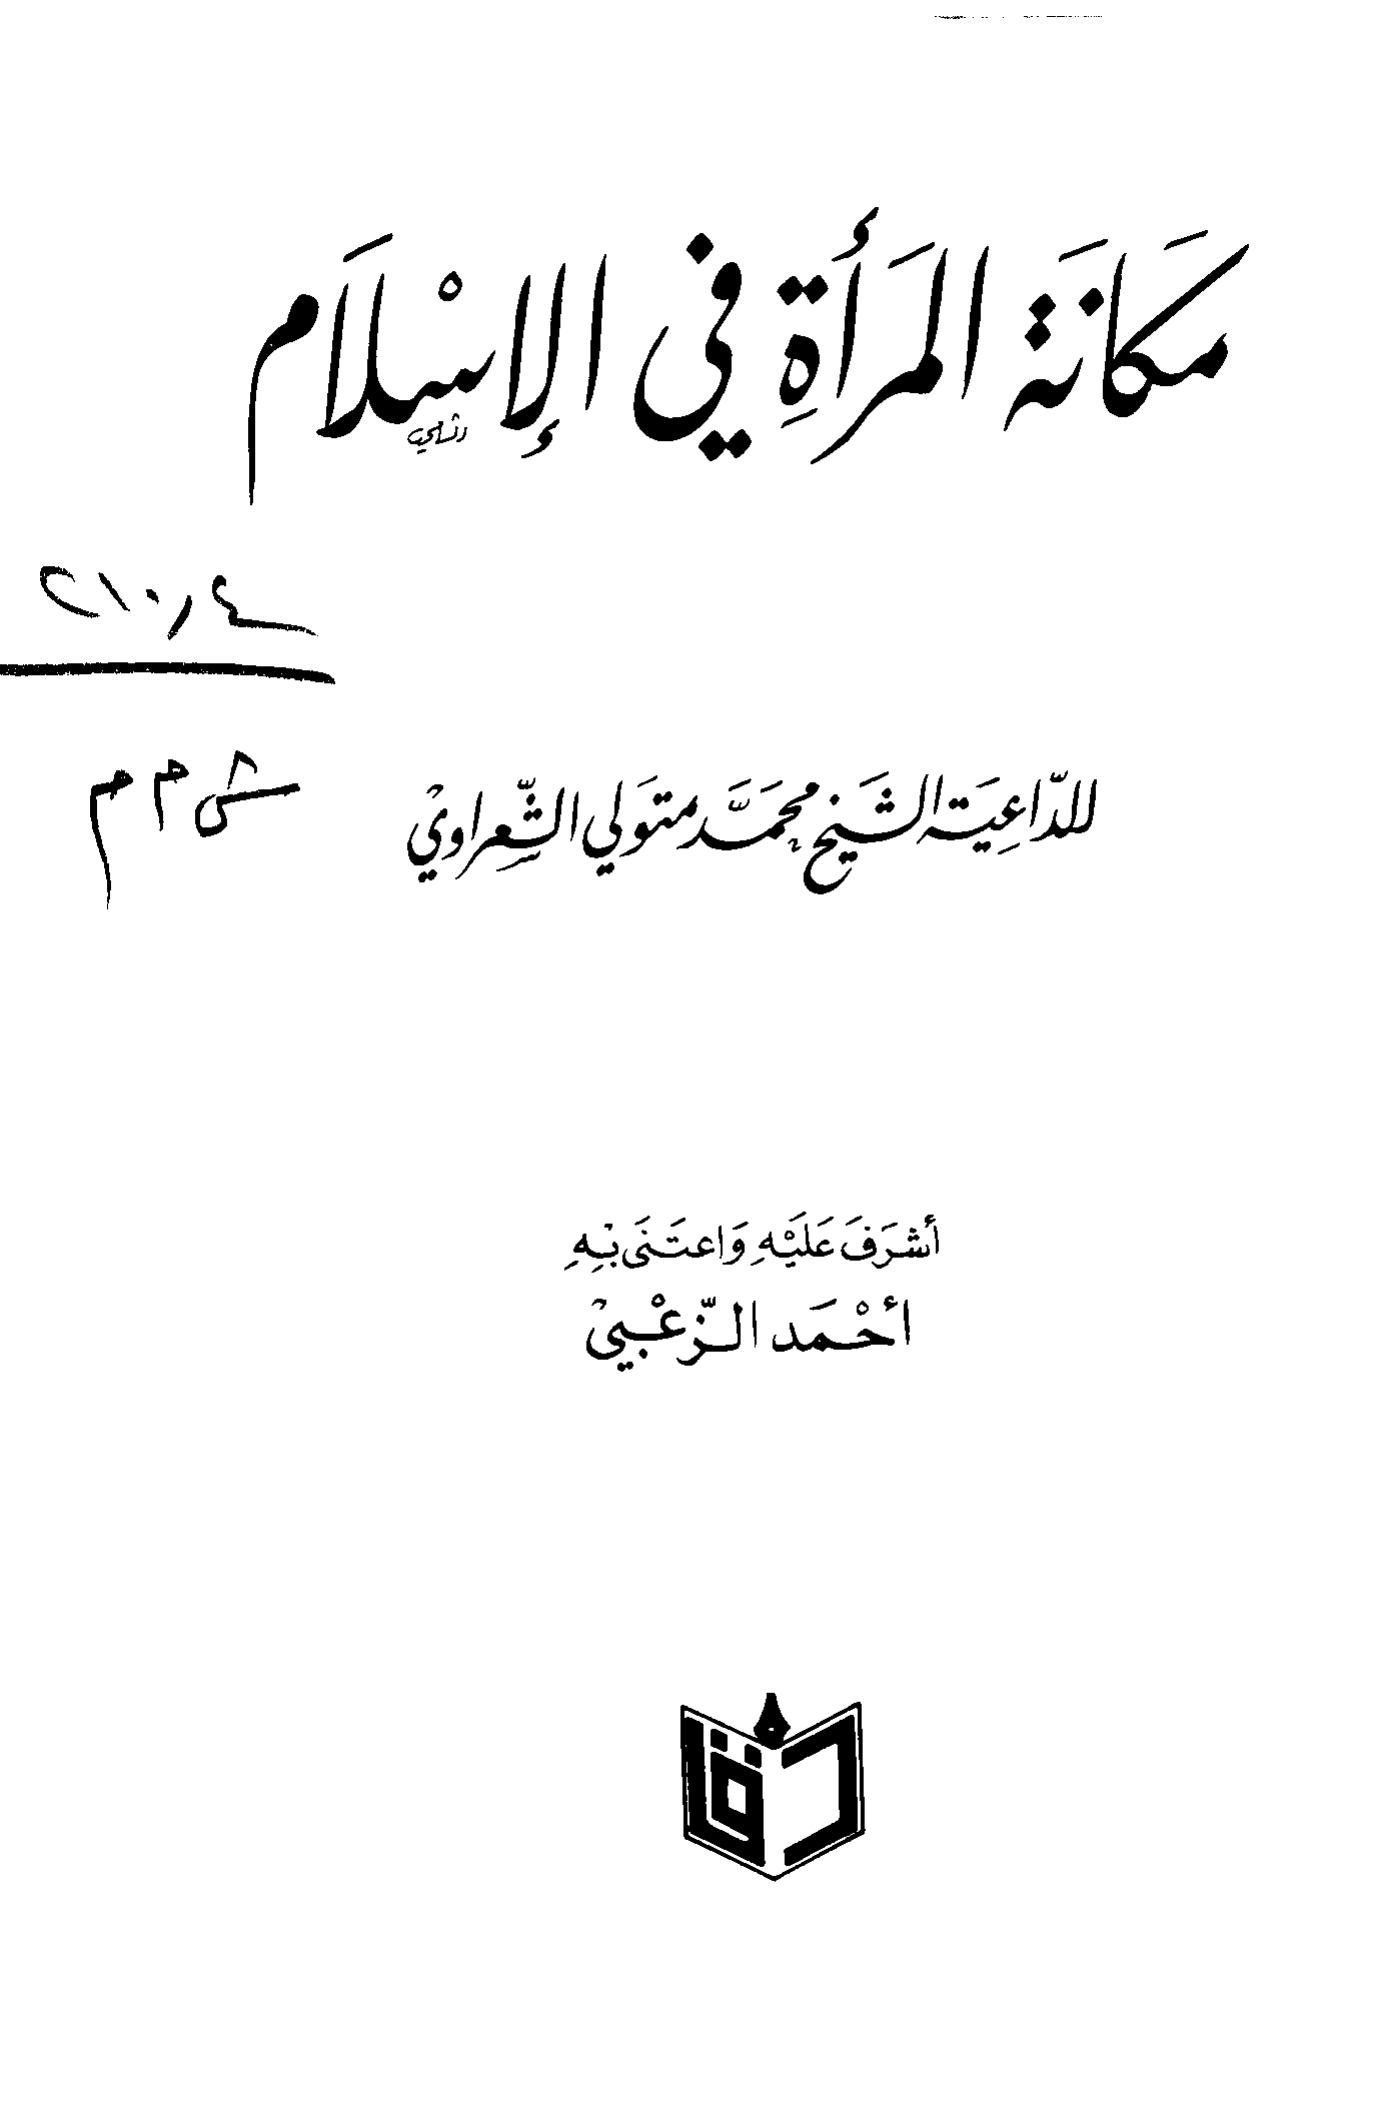 مَكَانَة المَرْأَةِ في الإسْلَام
٢١٠٫٤
ش م م
للدّاعِيَة الشَّيخ محمَّد متوَلي الشّعراوي
أشرَفَ عَلَيْهِ وَاعتَنَى بِهِ
أحْمَد الزّعْبي